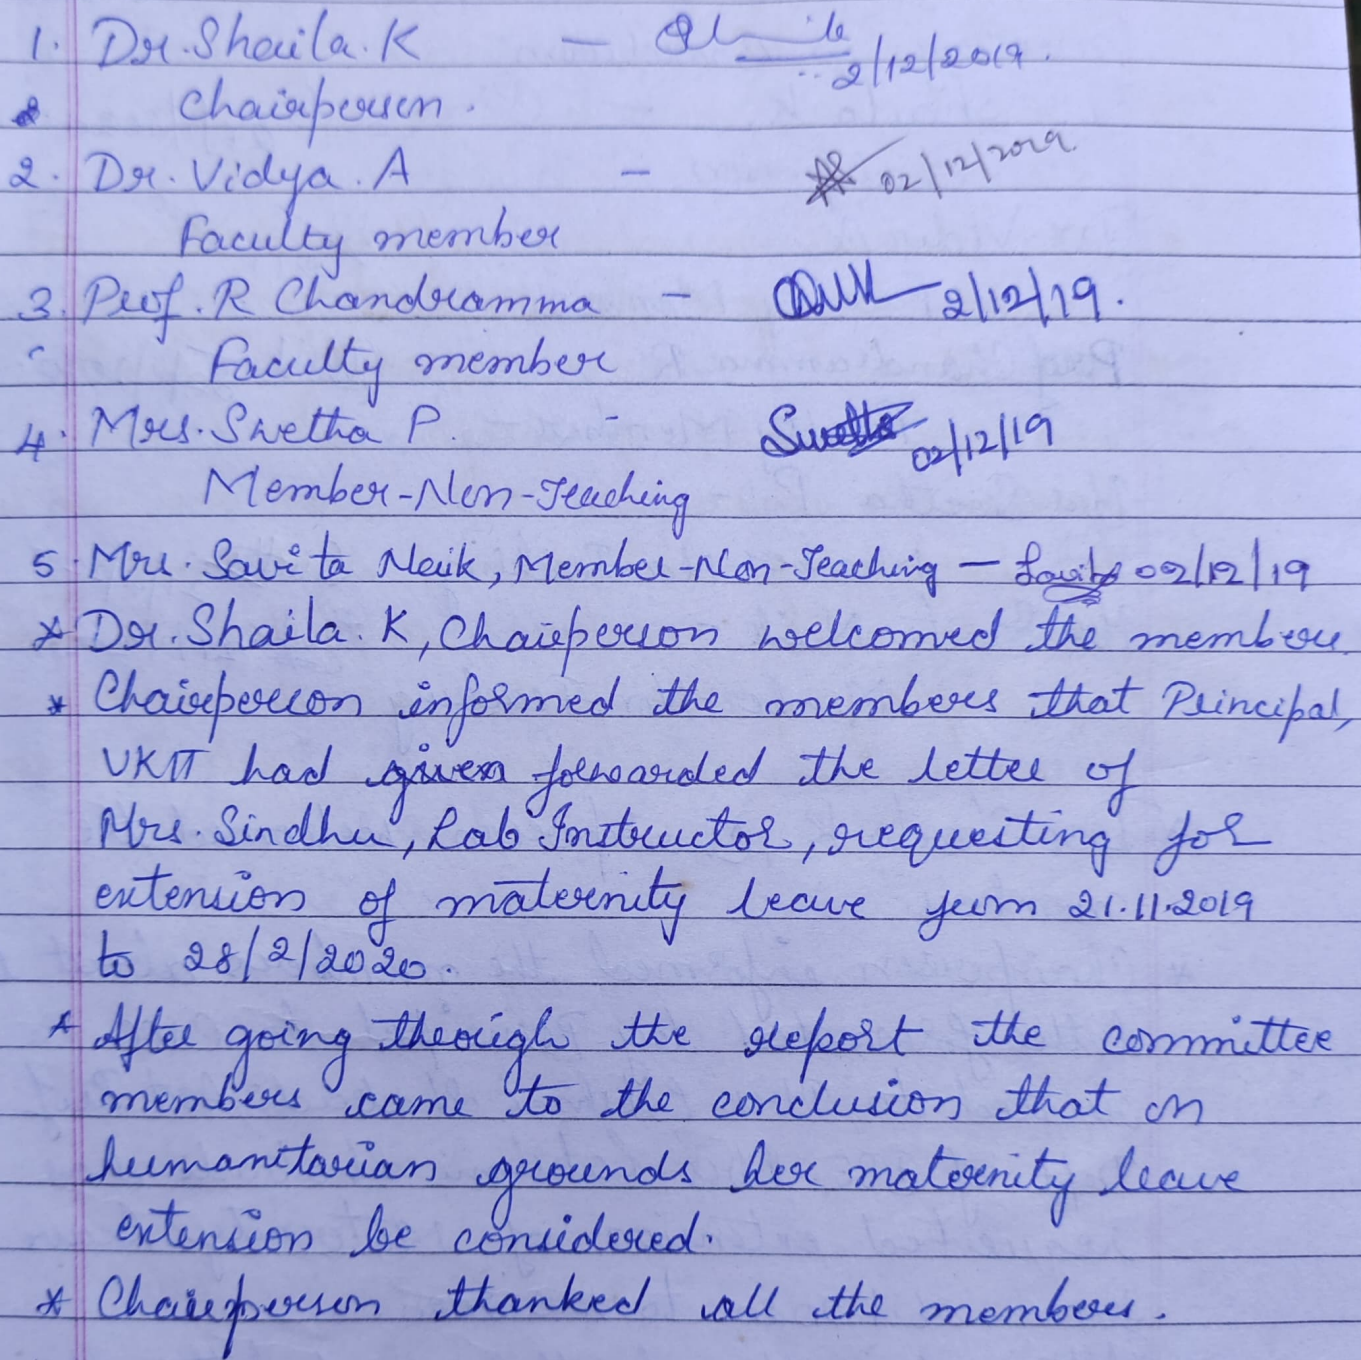 1. Dr. Shaila. K — 2/12/2019.
Chairperson.
2. Dr. Vidya. A — 02/12/2019
Faculty member
3. Prof. R Chandramma — 2/12/19.
Faculty member
4. Mrs. Swetha P. - Swetha 02/12/19
Member-Non-Teaching
5. Mrs. Savita Naik, Member-Non-Teaching — Savita 02/12/19
* Dr. Shaila. K, Chairperson welcomed the members.
* Chairperson informed the members that Principal,
VKIT had given forwarded the letter of
Mrs. Sindhu, Lab Instructor, requesting for
extension of maternity leave from 21.11.2019
to 28/2/2020.
* After going through the report the committee
members came to the conclusion that on
humanitarian grounds her maternity leave
extension be considered.
* Chairperson thanked all the members.